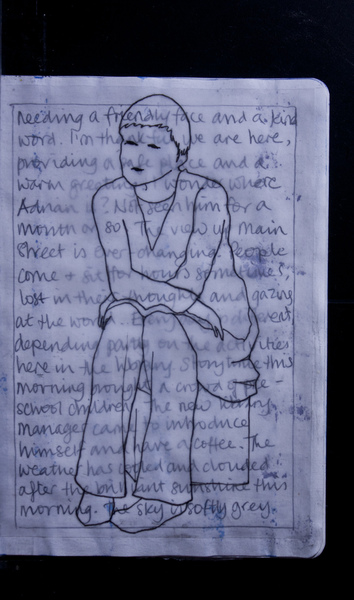 needing a friendly face and a kind
word. I'm thankful we are here,
providing a safe place and a
warm greeting. I wonder where
Adnan is? Not seen him for a
month or so. The view of main
Street is ever changing. People
come + sit for hours sometimes,
lost in their thoughts and gazing
at the world... Every
depending on the activities
here in the library. Storytime this
morning brought a crowd of pre-
school children. The new library
manager came to introduce
himself and have a coffee. The
weather has cooled and clouded
after the brilliant sunshine this
morning. The sky is softly grey.